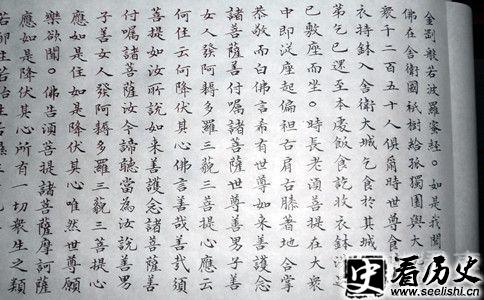 金剛般若波羅蜜經。如是我聞
佛在舍衛國祇樹給孤獨園與大
衆千二百五十人俱爾時世尊食
衣持鉢入舍衛大城乞食於其城
第乞已還至本處飯食訖收衣鉢洗
已敷座而坐。時長老須菩提在大衆
中即從座起偏袒右肩右膝著地合掌
恭敬而白佛言希有世尊如來善護念
諸菩薩善付囑諸菩薩世尊善男子善
女人發阿耨多羅三藐三菩提心應云
何住云何降伏其心佛言善哉善哉須
菩提如汝所說如來善護念諸菩薩善
付囑諸菩薩汝今諦聽當為汝說善男
子善女人發阿耨多羅三藐三菩提心
應如是住如是降伏其心唯然世尊願
樂欲聞。佛告須菩提諸菩薩摩訶薩
應如是降伏其心所有一切衆生之類
若卵生若胎生若濕生
史 看历史
www.seelishi.cn